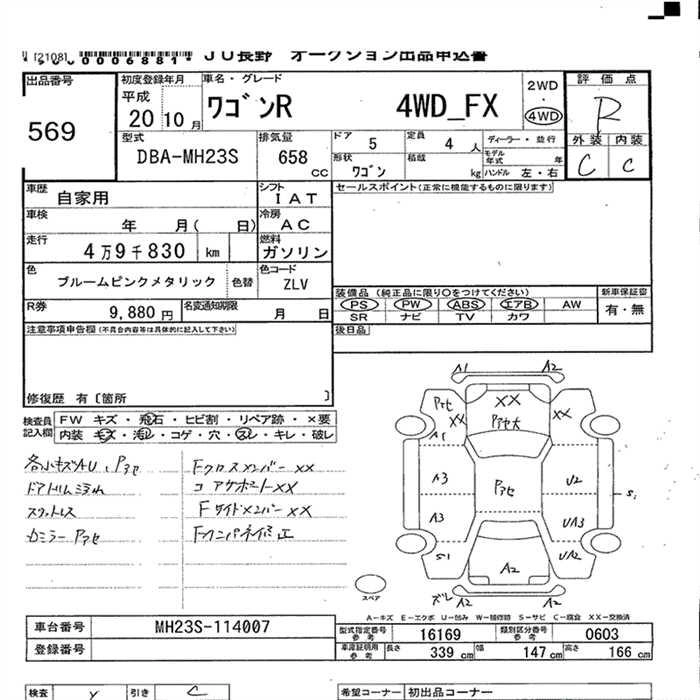 [2108] 0006881 JU長野 オークション出品申込書
出品番号
569
初度登録年月
平成
20 10月
車名・グレード
ワゴンR 4WD_FX
2WD
・
4WD
評価点
R
外装 内装
C C
型式
DBA-MH23S
排気量
658 CC
ドア 5
定員 4人
ディーラー・並行
形状 ワゴン
積載 kg
モデル年式 年
ハンドル 左・右
車歴 自家用
シフト IAT
セールスポイント(正常に機能するものに限ります)
車検 年 月( 日)
冷房 AC
走行 4万9千830 km
燃料 ガソリン
色 ブルームピンクメタリック 色替
色コード ZLV
装備品(純正品に限り○をつけてください)
PS PW ABS エアB AW
SR ナビ TV カワ
新車保証書
有・無
R券 9,880円
名変通知期限 月 日
後日品
注意事項申告欄(不具合内容等は具体的に記入して下さい)
修復歴 有〔箇所 〕
検査員記入欄
FW キズ・飛石・ヒビ割・リペア跡・×要
内装 キズ・汚れ・コゲ・穴・スレ・キレ・破レ
各小キズAU、Pアセ
ドアトリム汚れ
スカットレス
カミラーPアセ
Fクロスメンバー XX
コアサポートXX
FサイドメンバーXX
Fインパネ修正
A1 A2
Pアセ XX XX XX
A1 Pアセ大
A3 Pアセ U2
A3 UA3 S1
S1 A2 UA2
ズレ A2 A2
スペア
A-キズ E-エクボ U-凹み W-補修跡 S-サビ C-腐食 XX-交換済
車台番号 MH23S-114007
登録番号
型式指定番号参考 16169
類別区分番号参考 0603
車庫証明用参考 長さ 339cm 幅 147cm 高さ 166cm
検査 Y 引き C
希望コーナー 初出品コーナー